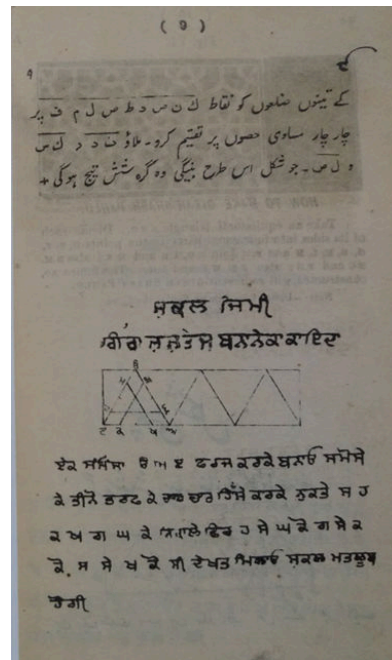 ( 9 )
کے تینوں ضلعوں کو نقاط ک ن ص د ط ص ل م ف پر
چار چار مساوی حصوں پر تقسیم کرو۔ ملاؤ ن د د ک س
و ل ص۔ جو شکل اس طرح بنیگی وہ گرہ شش تیج ہوگی +
ਸ਼ਕਲ ਜਿਮੀ
ਗੀਰਾ ਸ਼ਸ਼ਤੇਜ ਬਨਨੇਕਾ ਕਾਇਦਾ
ਏਕ ਸਮੋਸਾ ੳ ਅ ੲ ਫਰਜ ਕਰਕੇ ਬਨਾਓ ਸਮੋਸੇ
ਕੇ ਤੀਨੋ ਤਰਫ ਕੇ ਚਾਰ ਚਾਰ ਹਿੱਸੇ ਕਰਕੇ ਨੁਕਤੇ ਸ ਹ
ਕ ਖ ਗ ਘ ਕੇ ਫਿਰ ਹ ਸੇ ਘ ਕੋ ਗ ਸੇ ਕ
ਕੋ. ਸ ਸੇ ਖ ਕੋ ਮਿਲਾਓ ਸ਼ਕਲ ਮਤਲੂਬ
ਹੋਗੀ